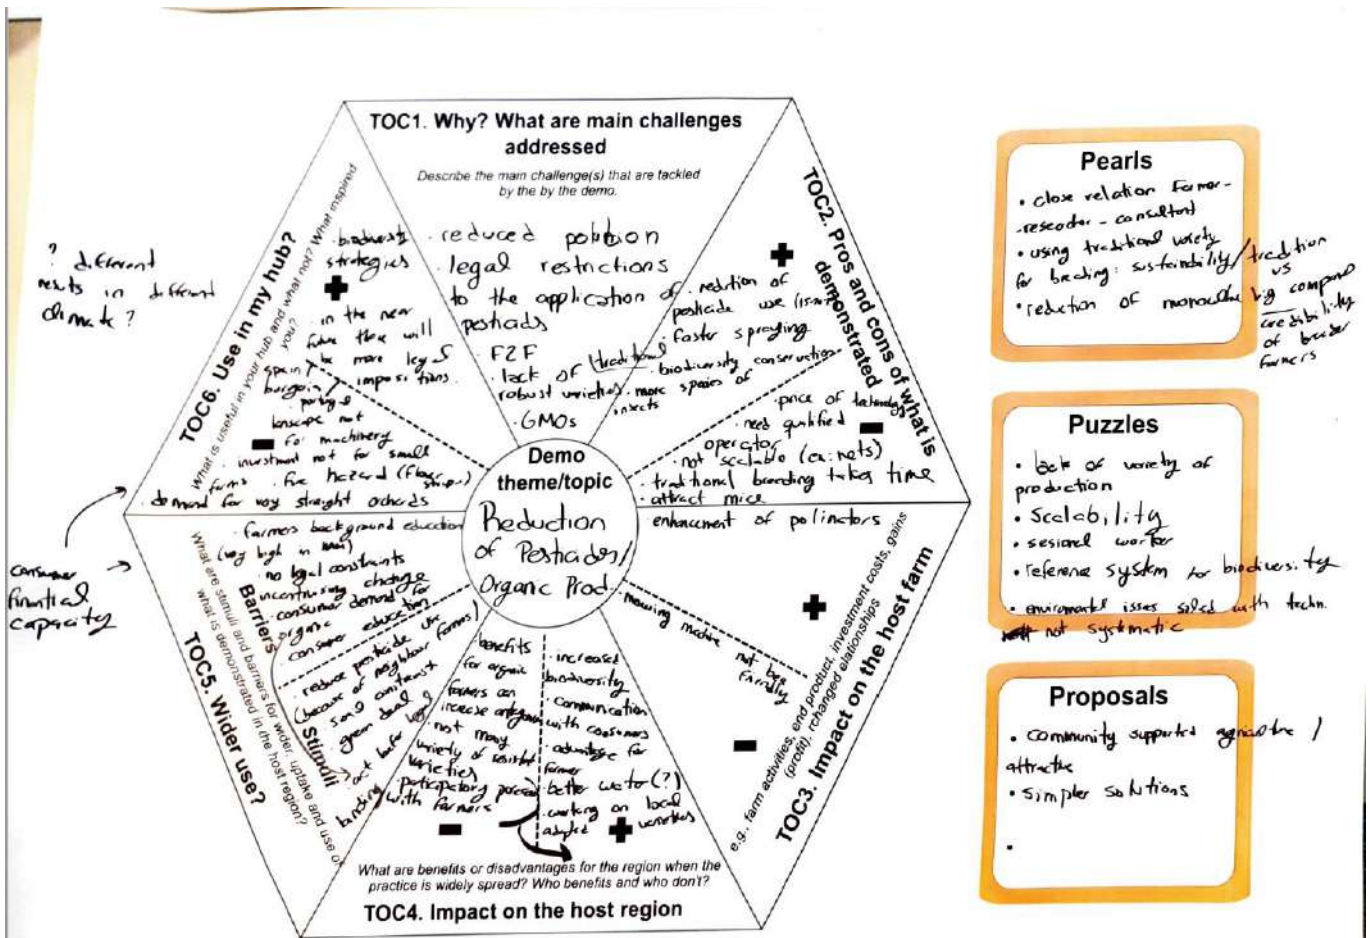 TOC1. Why? What are main challenges
addressed
Describe the main challenge(s) that are tackled
by the by the demo.
· reduced
· legal restrictions
to the application of
pesticids
· F2F
· lack of traditional
robust varieties
· GMOs
TOC2. Pros and cons of what is
demonstrated
+
· redution of
pesticide use
· faster sprayling
· biodiversity conservation
· more species of
insects
-
· price of technology
· need qualified
operator
· not scalable (ex: nets)
· traditional breeding takes time
· attract mice
TOC3. Impact on the host farm
e.g., farm activities, end product, investment costs, gains
(profit), rchanged relationships
enhancement of polinators
+
· mowing machine not bee
friendly
-
TOC4. Impact on the host region
What are benefits or disadvantages for the region when the
practice is widely spread? Who benefits and who don't?
· benefits
for organic
farmers can
increase
· not many
variety of resistent
varieties
· participatory
with farmers
-
· increased
biodiversity
· communication
with cosumers
· advantage for
farmer
· better water (?)
· working on local
adapted varieties
+
TOC5. Wider use?
What are stimuli and barriers for wider, uptake and use of
what is demonstrated in (the host region?
Barriers
· farmers background education
(very high in
· no legal constraints
incentivising change
· consumer demand for
organic
· consumer education
Stimuli
· reduce pesticide use
(because of neighbour farms)
· soil constraint
· green deal
TOC6. Use in my hub?
What is useful in your hub and what not? What inspired
you?
· biodiversity
strategies
+
· in the near
future there will
be more legal
impositions.
spain?
-
not
for machinery
· investment not for small
farms
· fire hazard (flower
strips)
· demand for very straight orchards
Demo
theme/topic
Reduction
of Pesticades/
Organic Prod.
? different
results in different
climate?
consumer
financial
capacity
Pearls
· close relation farmer-
- consultant
· using traditional variety
for breeding: sustainbility/tradition
vs
big
credibility
of
farmers
· reduction of
Puzzles
· lack of variety of
production
· Scalability
· sesional worker
· reference system for biodiversity
· with techn.
not systematic
Proposals
· community supported agriculture /
· simpler solutions
·